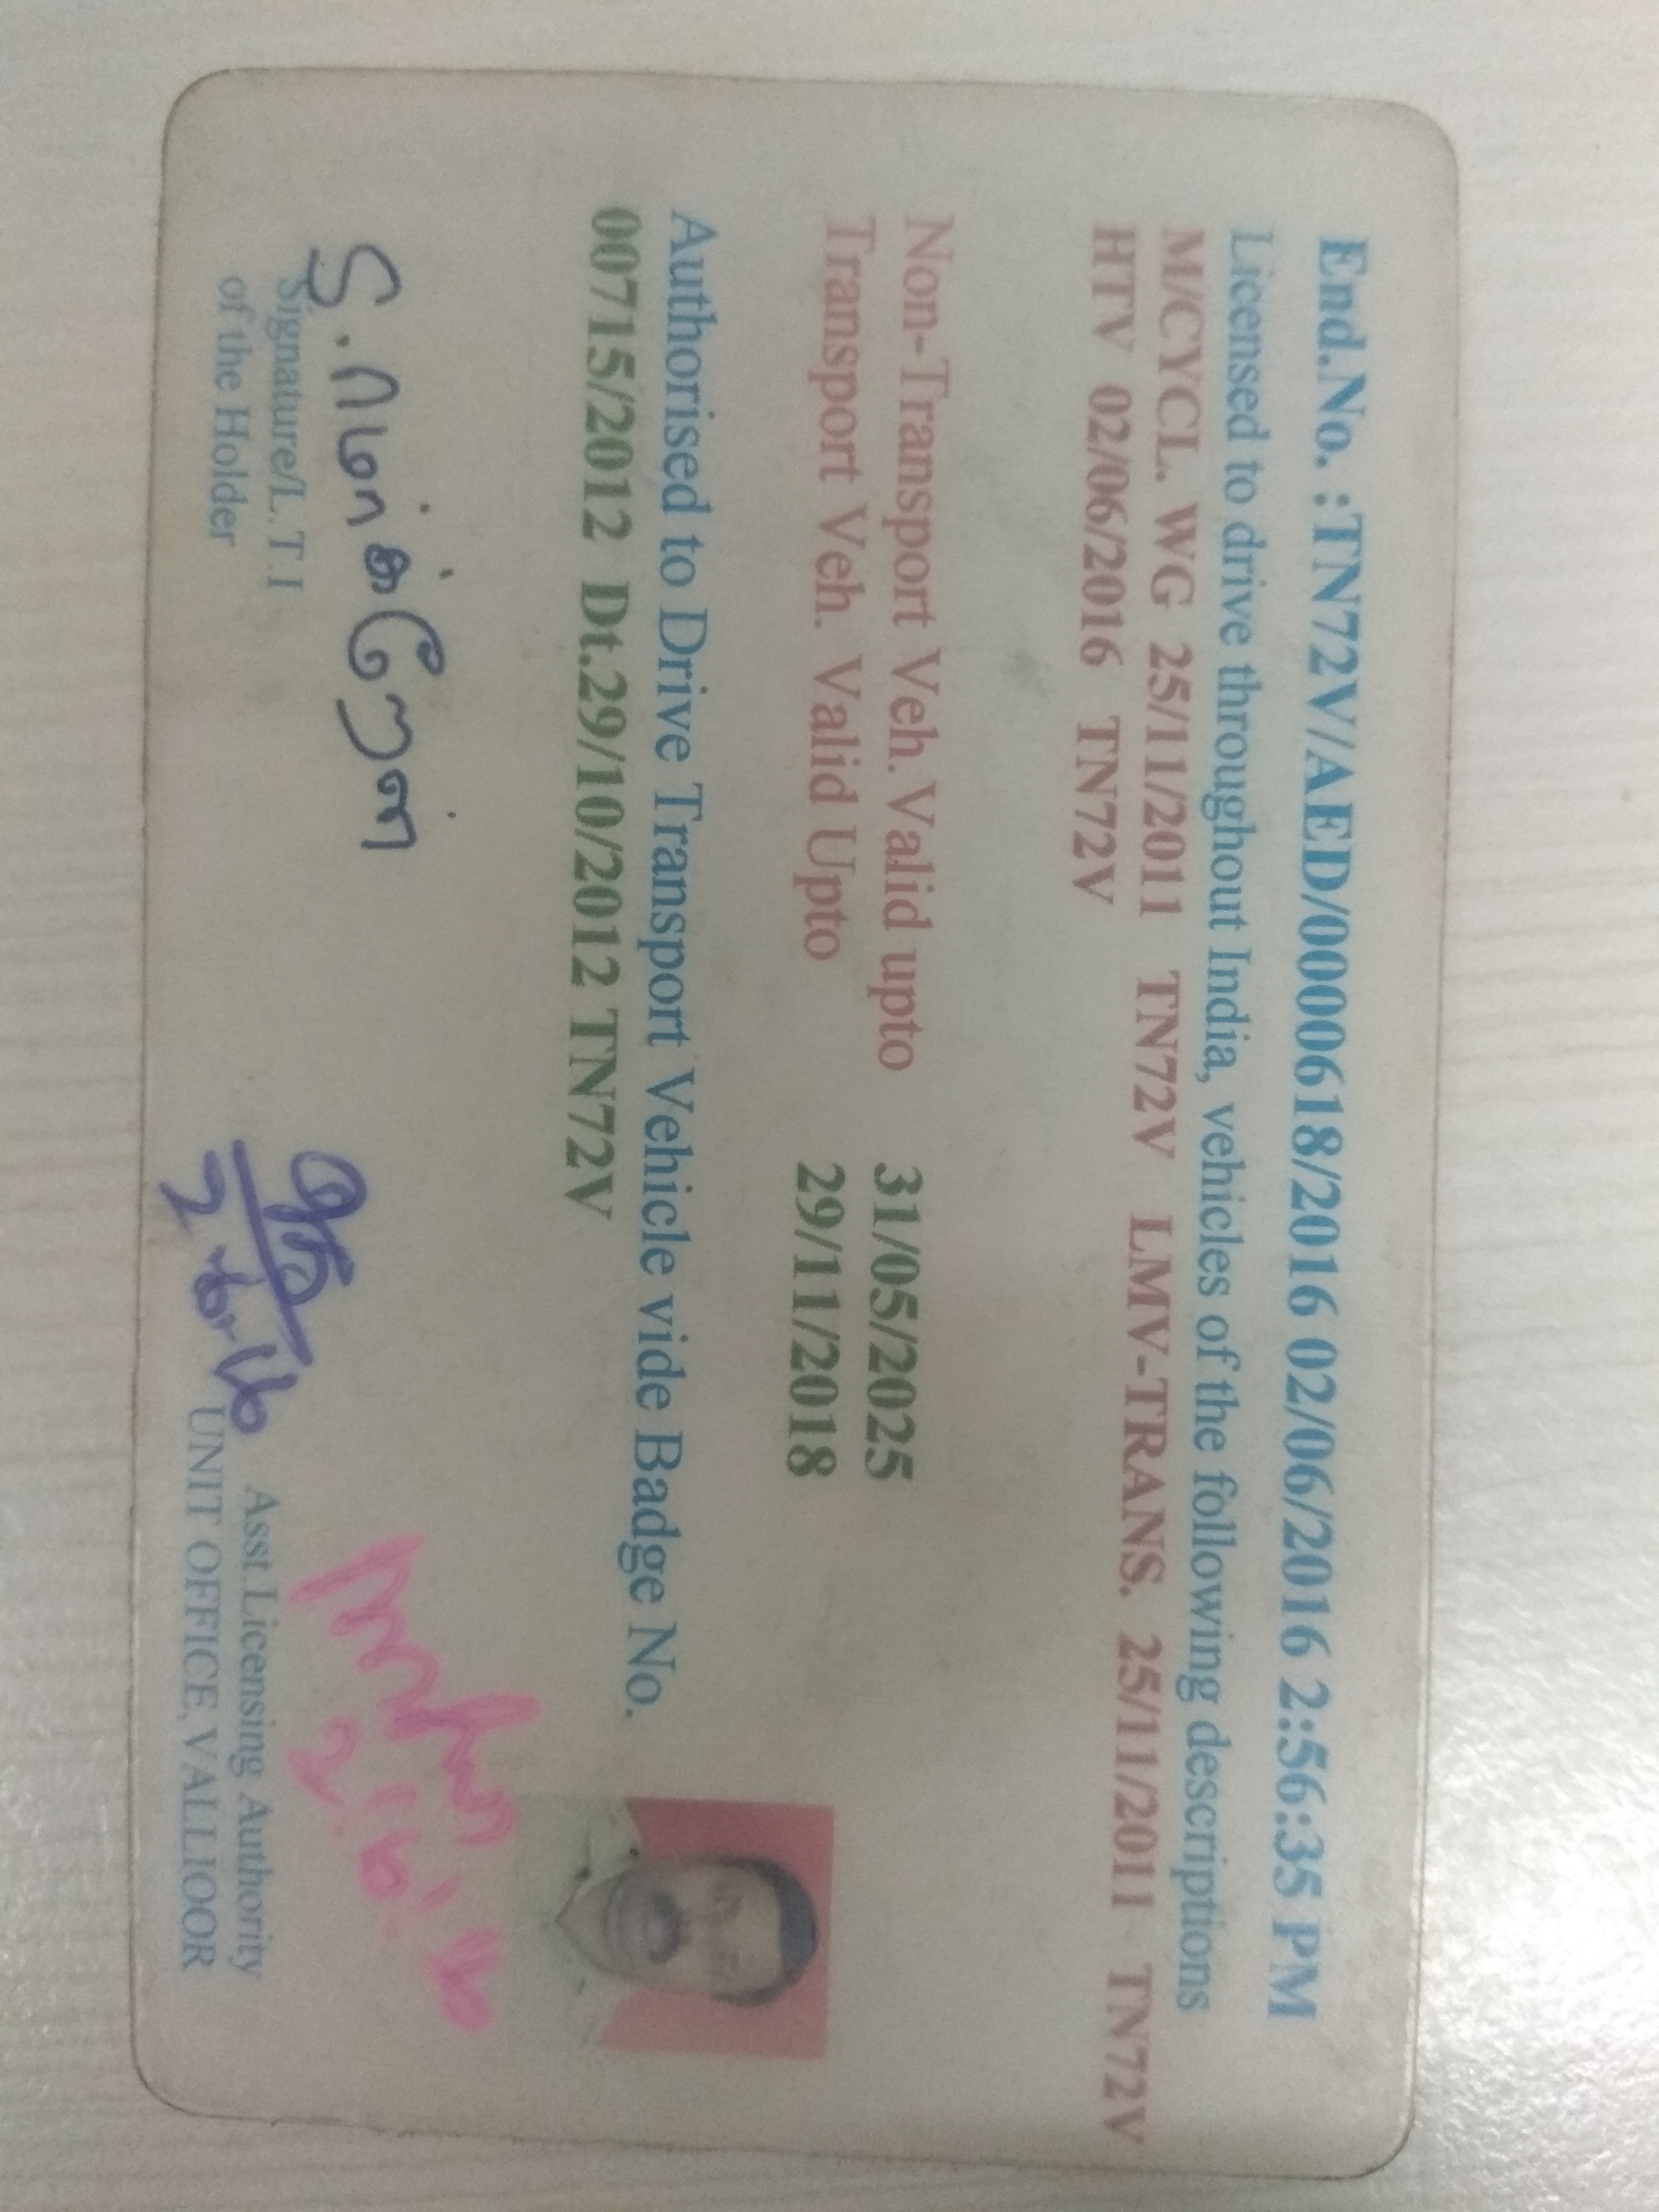 End.No. :TN72V/AED/0000618/2016 02/06/2016 2:56:35 PM
Licensed to drive throughout India, vehicles of the following descriptions
M/CYCL. WG 25/11/2011 TN72V LMV-TRANS. 25/11/2011 TN72V
HTV 02/06/2016 TN72V
Non-Transport Veh. Valid upto 31/05/2025
Transport Veh. Valid Upto 29/11/2018
Authorised to Drive Transport Vehicle vide Badge No.
00715/2012 Dt.29/10/2012 TN72V
Signature/L.T.I
of the Holder
2.6.16
2.6.16
Asst.Licensing Authority
UNIT OFFICE,VALLIOOR